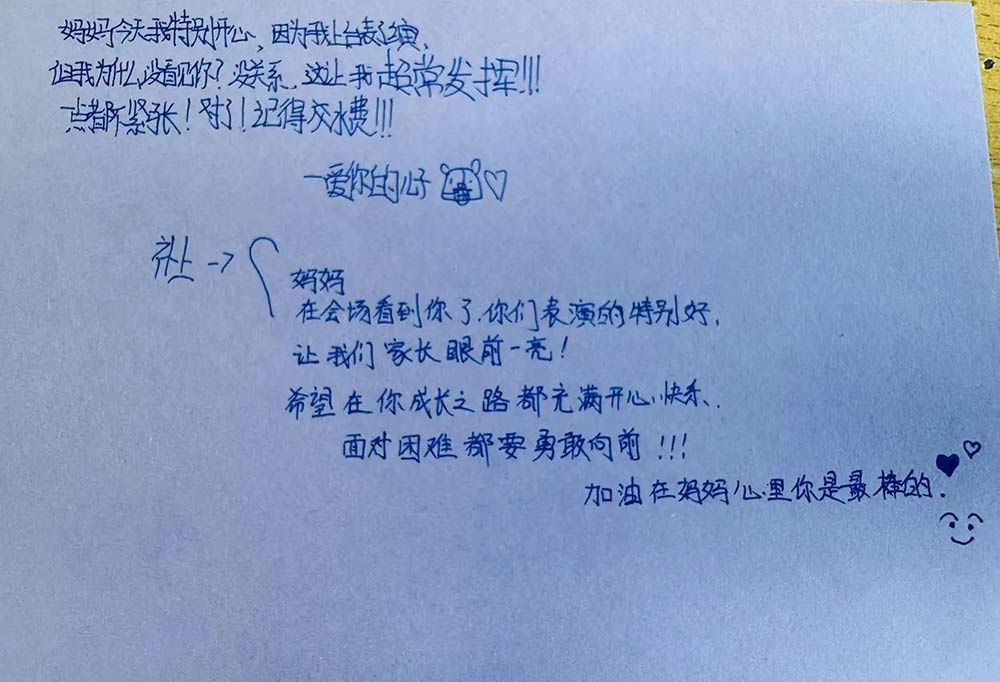 妈妈今天我特别开心,因为我上台表演,
但我为什么没看见你?没关系,这让我超常发挥!!!
一点都不紧张!对了!记得交水费!!!
—爱你的儿子♡
补→
妈妈
在会场看到你了.你们表演的特别好,
让我们家长眼前一亮!
希望在你成长之路都充满开心、快乐、
面对困难都要勇敢向前!!!
加油在妈妈心里你是最棒的.